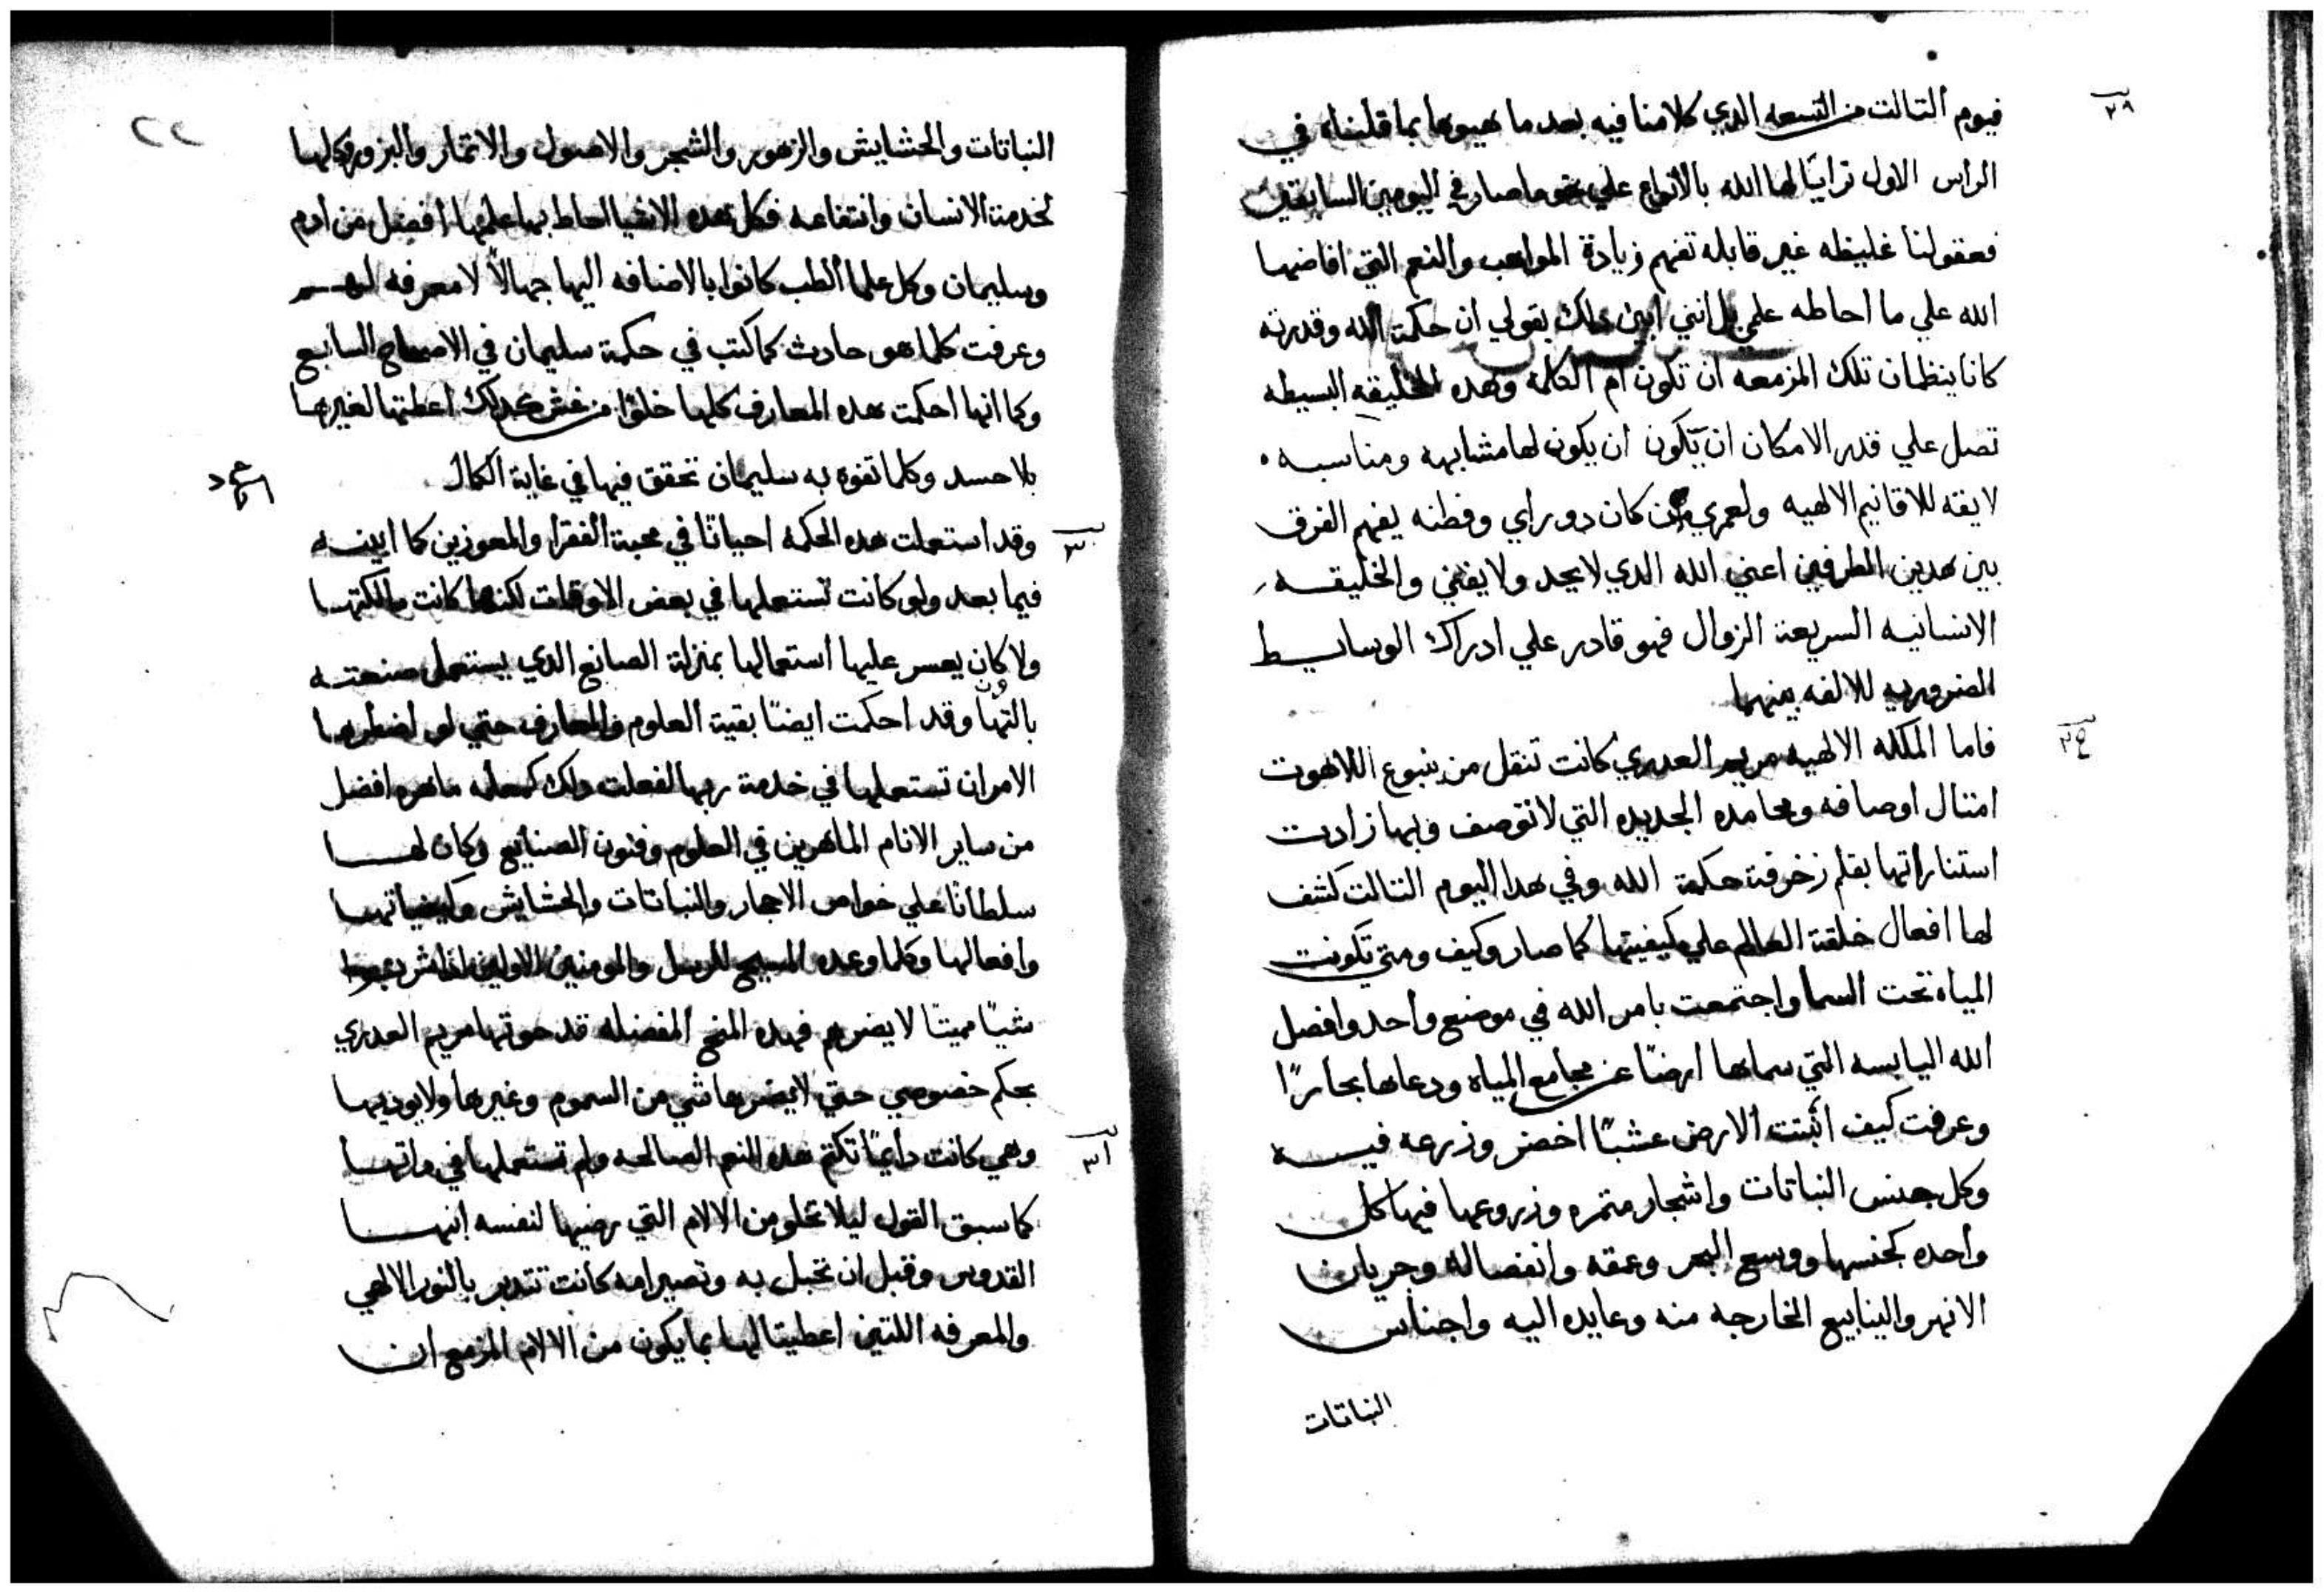 ٢٨
فيوم التالت من التسعه الدي كلامنا فيه بعد ما هيوها بما قلناه في
الراس الاول ترايا لها الله بالانواع علي نحو ما صار في اليومين السابقين
فعقولنا غليظه غير قابله تفهم زيادة المواهب والنعم التي افاضها
الله علي ما احاطه علمي بل انني ابين دلك بقولي ان حكمة الله وقدرته
كانا ينظمان تلك المزمعه ان تكون ام الكلمة وهده الخليقه البسيطه
تصل علي قدر الامكان ان تكون ان يكون لها مشابهه ومناسبه
لايقه للاقانيم الالهيه ولعمري من كان دو راي وفطنه يفهم الفرق
بين هدين الطرفين اعني الله الدي لا يحد ولا يفني والخليقه
الانسانيه السريعة الزوال فهو قادر علي ادراك الوسايط
الضروريه للالفه بينهما
فاما الملكه الالهيه مريم العدري كانت تنقل من ينبوع اللاهوت
امتال اوصافه ومحامده الجديده التي لا توصف وبها زادت
استناراتها بقلم زخرفة حكمة الله وفي هدا اليوم التالت كشف
لها افعال خلقة العالم علي كيفيتها كما صار وكيف ومتي تكونت
المياه تحت السما واجتمعت بامر الله في موضع واحد وافصل
الله اليابسه التي سماها ارضا عن مجامع المياه ودعاها بحارا
وعرفت كيف انبتت الارض عشبا اخضر وزرعه فيه
وكل جنس النباتات واشجار متمره وزروعها فيها كل
واحده كجنسها ووسع البحر وعمقه وانفصاله وجريان
الانهر والينابيع الخارجه منه وعايده اليه واجناس
النباتات
النباتات والحشايش والزهور والشجر والاصول والاتمار والبزور وكلها
لخدمة الانسان وانتفاعه فكل هده الاشيا احاط بها علمها افضل من ادم
وسليمان وكل علما الطب كانوا بالاضافه اليها جهالا لا معرفه لهم
وعرفت كلما هو حادث كما كتب في حكمة سليمان في الاصحاح السابع
وكما انها احكمت هده المعارف كلها خلوا من غش كدلك اعطتها لغيرها
بلا حسد وكلما تفوه به سليمان تحقق فيها في غاية الكمال
٣٠
وقد استعملت هده الحكمه احيانا في محبة الفقرا والمعوزين كما ابينه
فيما بعد ولو كانت تستعملها في بعض الاوقات لكنها كانت مالكتها
ولا كان يعسر عليها استعمالها بمنزلة الصانع الدي يستعمل صنعته
بالتهاون وقد احكمت ايضا بقية العلوم والمعارف حتي لو اضطرها
الامر ان تستعملها في خدمة ربها لفعلت دلك كمعلمه ماهره افضل
من ساير الانام الماهرين في العلوم وفنون الصنايع وكان لها
سلطانا علي خواص الاحجار والنباتات والحشايش وكيفياتها
وافعالها وكلما وعده المسيح للرسل والمومنين الاولين
شيا مميتا لا يضرهم فهده المنح المفضله قد حوتها مريم العدري
بحكم خصوصي حتي لا يضرها شي من السموم وغيرها ولا يوديها
٣١
وهي كانت دايما تكتم هده النعم الصالحه ولم تستعملها في داتها
كما سبق القول ليلا تخلو من الالام التي رضيها لنفسه ابنها
القدوس وقبل ان تحبل به وتصير امه كانت تتدبر بالنور الالهي
والمعرفه اللتين اعطيتا لها بما يكون من الالام المزمع ان